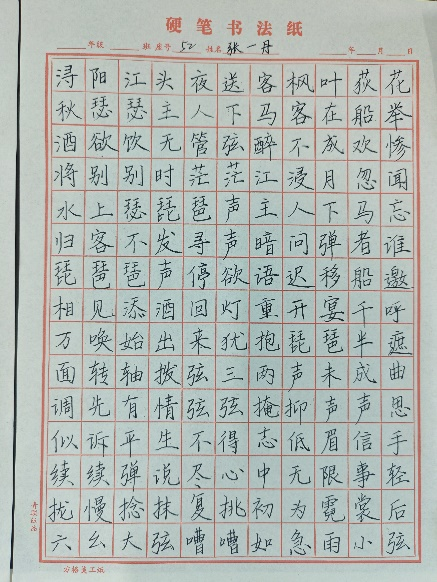 硬笔书法纸
年级 班 座号 52 姓名 张一丹 年 月 日
浔阳江头夜送客枫叶荻花
秋瑟瑟主人下马客在船举
酒欲饮无管弦醉不成欢惨
将别别时茫茫江浸月忽闻
水上瑟琵琶声主人下马忘
归客不发寻声暗问弹者谁
琵琶琶声停欲语迟移船邀
相见添酒回灯重开宴千呼
万唤始出来犹抱琵琶半遮
面转轴拨弦三两声未成曲
调先有情弦弦掩抑声声思
似诉平生不得志低眉信手
续续弹说尽心中无限事轻
拢慢捻抹复挑初为霓裳后
六幺大弦嘈嘈如急雨小弦